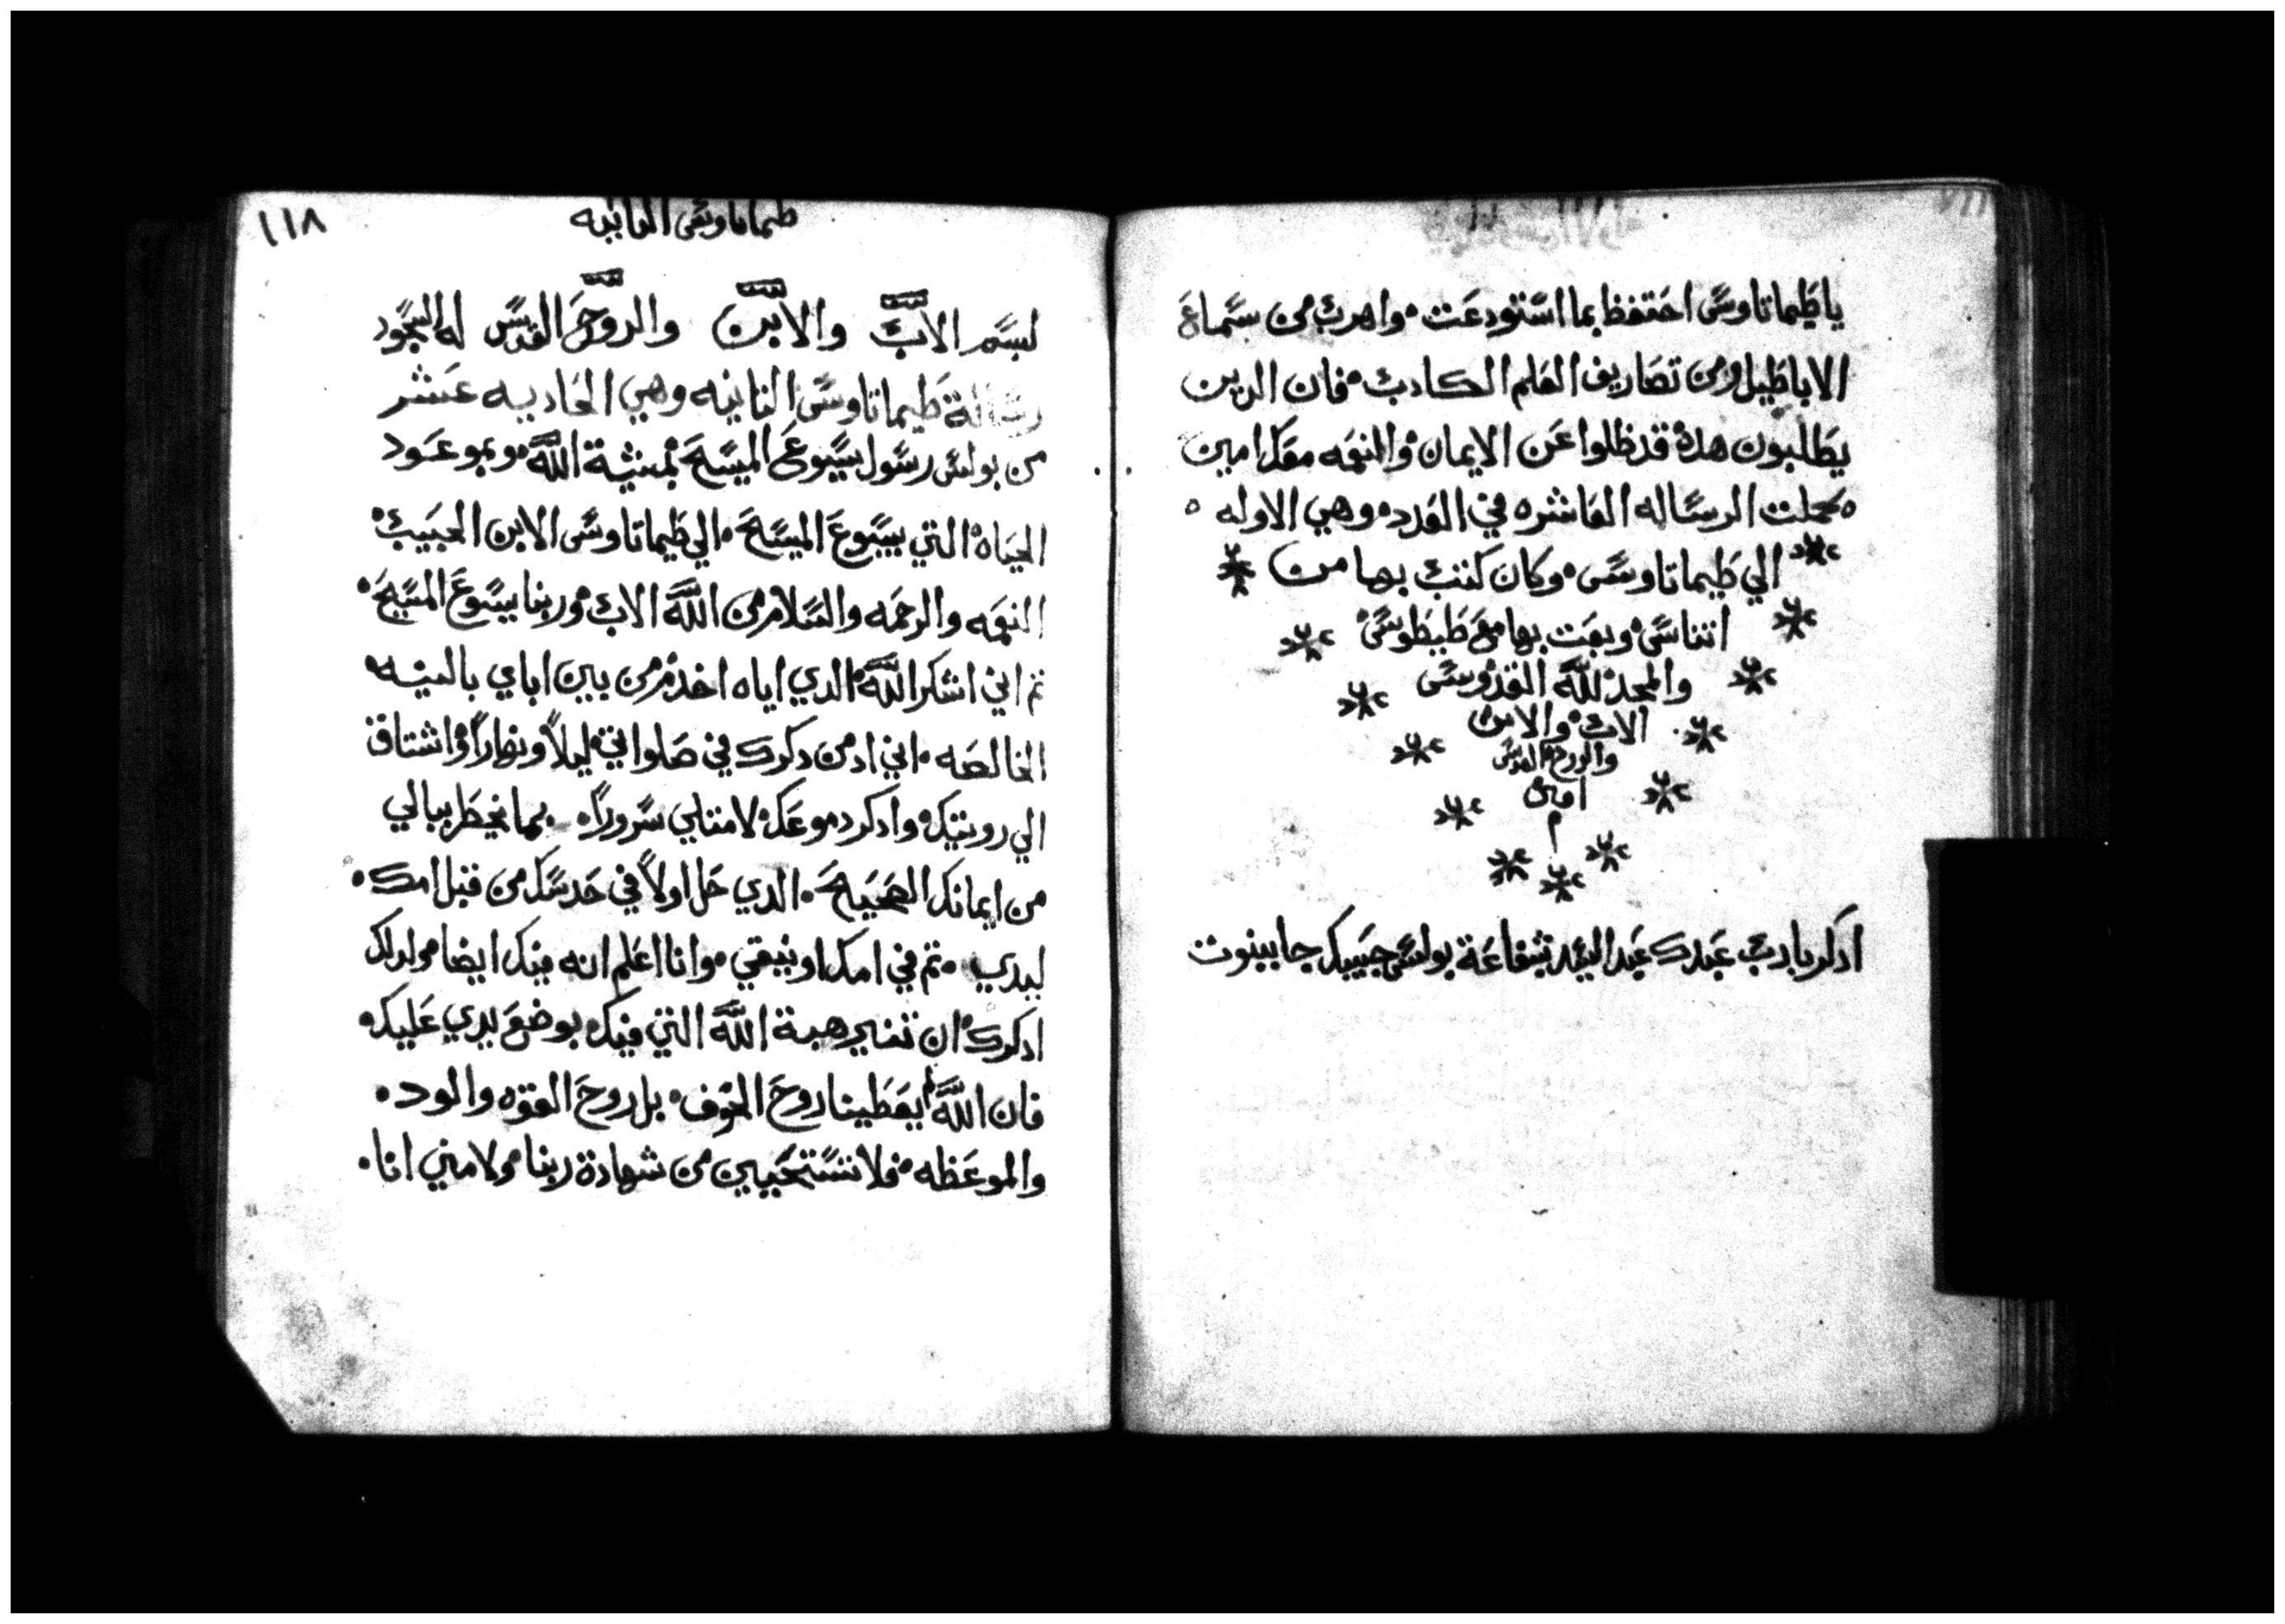 ياطيماتاوس احتفظ بما استودعت واهرب من سماع
الاباطيل ومن تصاريف العلم الكادب فان الدين
يطلبون هده قد ظلوا عن الايمان والنعمه معك امين
كملت الرساله العاشره في العدد وهي الاوله
الي طيماتاوس وكان كتب بها من
اتناس وبعت بها مع طيطوس
والمجد لله القدوس
الاب والابن
والروح القدس
امين
م
ادكر يارب عبدك عبد السيد بشفاعة بولس حبيبك جا بينوت
١١٨
طيماتاوس التانيه
بسم الاب والابن والروح القدس له السجود
رسالة طيماتاوس التانيه وهي الحاديه عشر
من بولس رسول يسوع المسيح بمشية الله وبموعود
الحياه التي بيسوع المسيح الي طيماتاوس الابن الحبيب
النعمه والرحمه والسلام من الله الاب وربنا يسوع المسيح
تم اني اشكر الله الدي اياه اخدم من بين اباي بالنيه
الخالصه اني ادمن دكرك في صلواتي ليلاً ونهاراً واشتاق
الي رويتك وادكر دموعك لامتلي سروراً بما يخطر ببالي
من ايمانك الصحيح الدي حل اولاً في حدسك من قبل امك
ليدي تم في امك اونيقي وانا اعلم انه فيك ايضا ولدلك
ادكرك ان تنير هبة الله التي فيك بوضع يدي عليك
فان الله لم يعطينا روح الخوف بل روح القوه والود
والموعظه فلا تستحيين من شهادة ربنا ولا مني انا